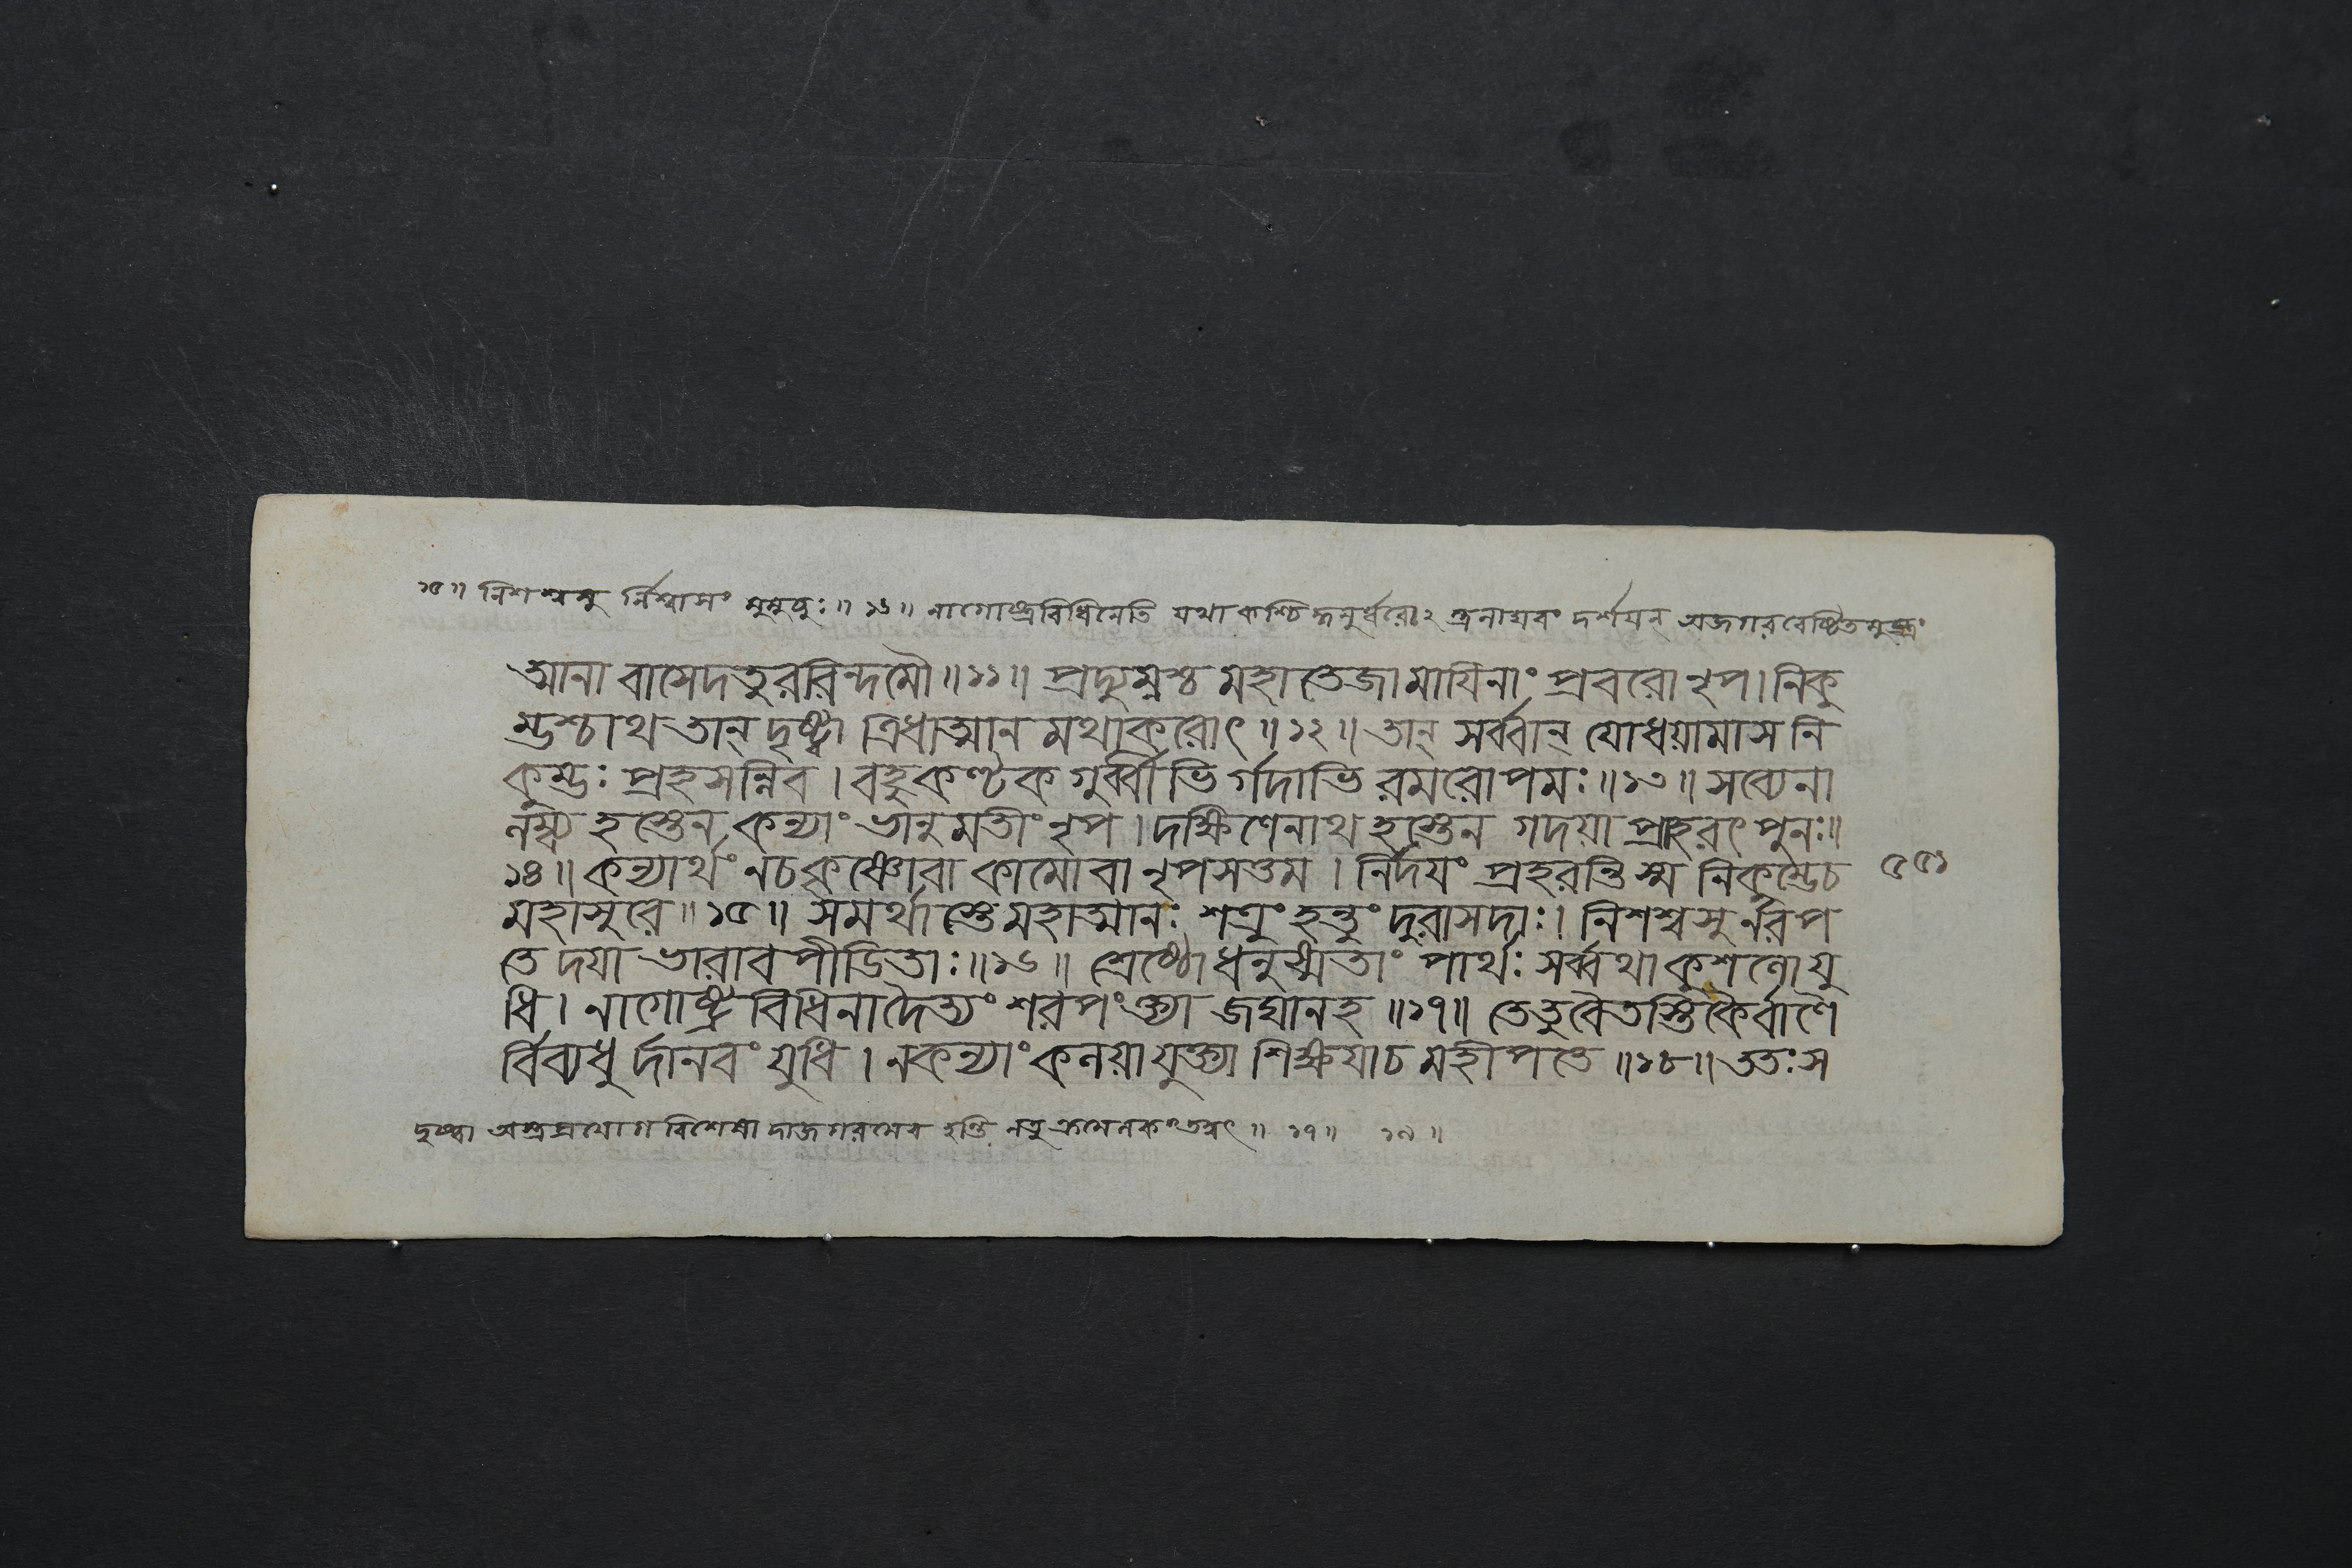 ১৫॥ নিশশ্বসু র্নিশ্বাসং মুমুচুঃ॥১৬॥ নাগোষ্ট্রবিধিনেতি যথা কশ্চিদ্ধনুর্ধ্বরোঽ দর্শয়ন্ অজগরবেষ্টিতমুষ্ট্রং
আনা বাসেদতুররিন্দমৌ॥১১॥ প্রদ্যুম্নশ্চ মহাতেজামাযিনাং প্রবরোনৃপ।নিকু
ম্ভশ্চাথ তান্ দৃষ্ট্বা ত্রিধাত্মান মথাকরোৎ॥১২॥ তান্ সর্ব্বান্ যোধয়ামাস নি
কুম্ভঃ প্রহসন্নিব। বহুকণ্টক গুর্ব্বীভি র্গদাভি রমরোপমঃ॥১৩॥ সব্যেনা
লম্ব্য হস্তেন কন্যাং ভানুমতীং নৃপ।দক্ষিণেনাথ হস্তেন গদয়া প্রাহরৎ পুনঃ॥
১৪॥ কন্যার্থং নচকৃষ্ণোবা কামো বা নৃপসত্তম। নির্দয়ং প্রহরন্তিস্ম নিকুম্ভেচ ৫৫১
মহাসুরে॥১৫॥ সমর্থাস্তেমহাত্মানঃ শত্রুং হন্তুং দুরাসদাঃ। নিশশ্বসুর্নরপ
তে দয়া ভারাব পীডিতাঃ॥১৬॥ শ্রেষ্ঠোধনুষ্মতাং পার্থঃ সর্ব্বথাকুশলোযু
ধি। নাগোষ্ট্রবিধিনাদৈত্যং শরপংক্ত্যা জঘানহ॥১৭॥ তেতুবৈতস্তিকৈর্বাণৈ
র্বিব্যধু র্দানবং যুধি। নকন্যাং কলয়া যুক্ত্যা শিক্ষয়াচ মহীপতে॥১৮॥ ততঃস
দৃষ্ট্বা অস্ত্রপ্রয়োগ বিশেষা দাজগরমেব হন্তি নতু ক্রমেলকং তদ্বৎ॥ ১৭॥ ১৯॥